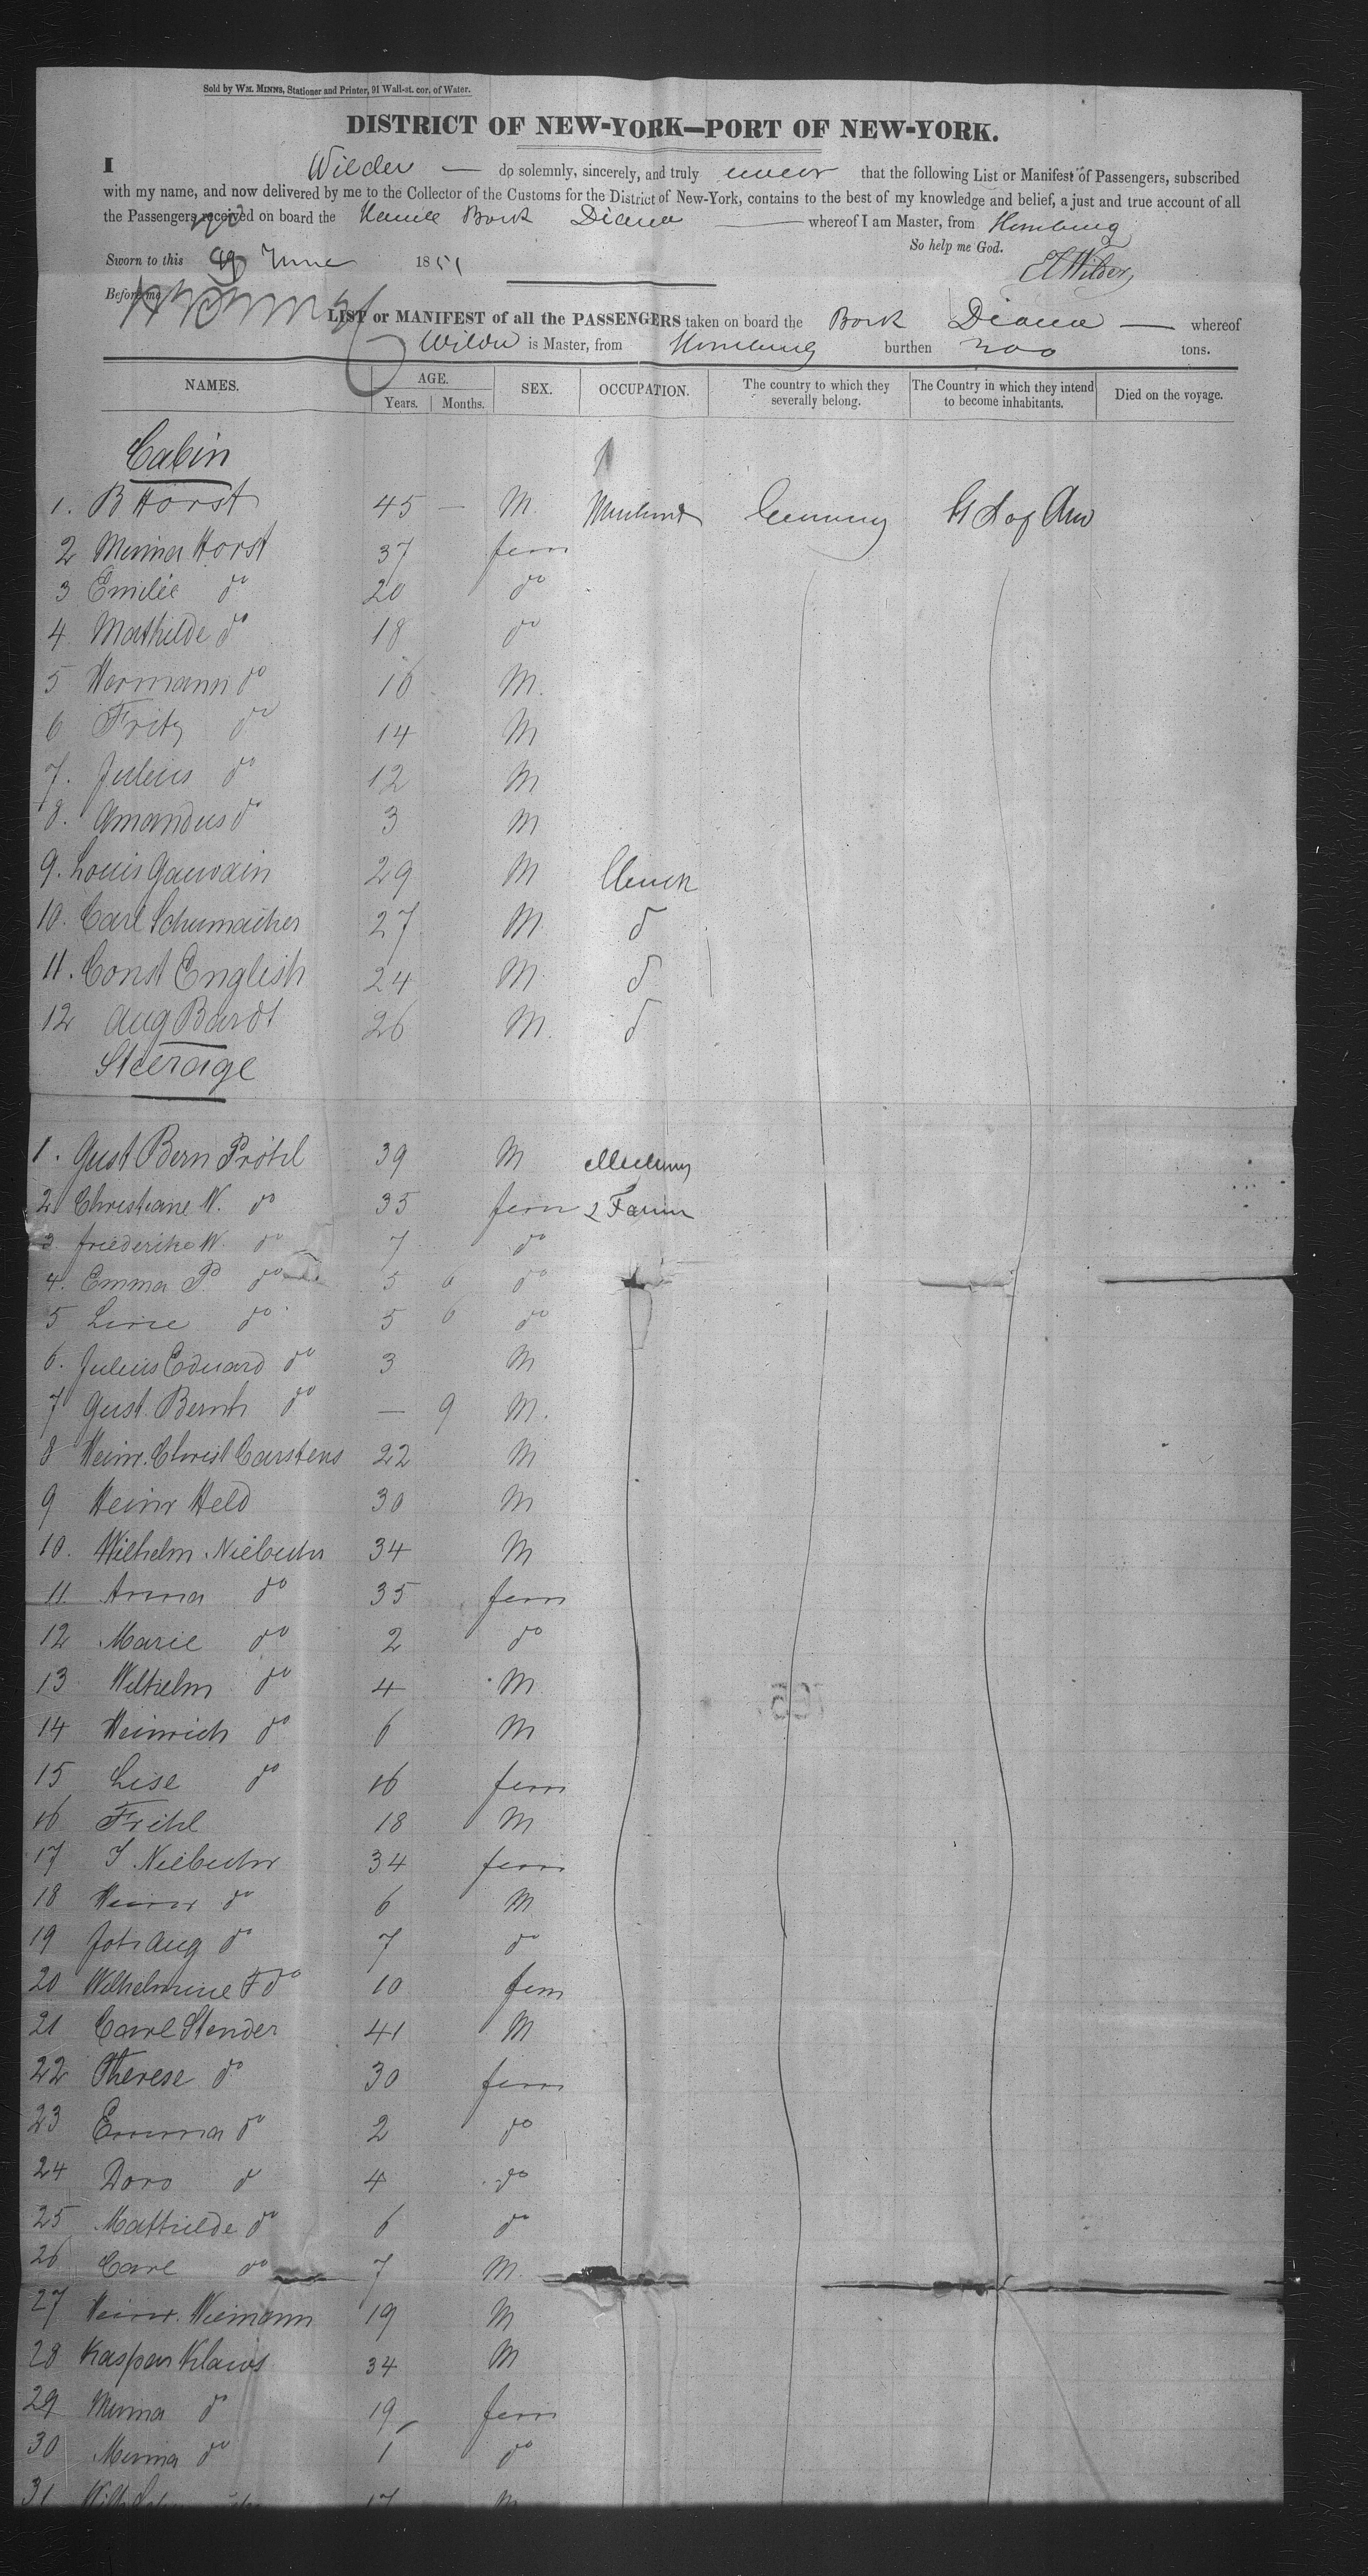 Sold by WM. MINNS, Stationer and Printer, 91 Wall-st. cor. of Water.
DISTRICT OF NEW-YORK—PORT OF NEW-YORK.
I Wilder — do solemnly, sincerely, and truly swear that the following List or Manifest of Passengers, subscribed
with my name, and now delivered by me to the Collector of the Customs for the District of New-York, contains to the best of my knowledge and belief, a just and true account of all
the Passengers received on board the Bark Diana — whereof I am Master, from Hamburg
So help me God.
Sworn to this June 1851
Wilder
Before me
LIST or MANIFEST of all the PASSENGERS taken on board the Bark Diana — whereof
Wilder is Master, from Hamburg burthen 300 tons.
NAMES. AGE. Years. Months. SEX. OCCUPATION. The country to which they severally belong. The Country in which they intend to become inhabitants. Died on the voyage.
Cabin
1. B Horst 45 — M. Merchant Germany U S of Am
2 Minna Horst 37 fem
3 Emilie do 20 do
4 Mathilde do 18 do
5 Hermann do 16 M.
6 Fritz do 14 M
7. Julius do 12 M
8. Amandus do 3 M
9. Louis Gauvain 29 M Clerck
10. Carl Schumacher 27 M d
11. Const English 24 M. d
12 Aug Bardt 26 M. d
Steerage
1. Gust Bern Pröhl 39 M
2 Christiane W. do 35 fem & Farmer
3. Friederike W. do 7 do
4. Emma P. do 5 6 do
5 Line do 5 6 do
6. Julius Eduard do 3 M
7 Gust. Bernh do — 9 M.
8 Heinr. Christ Carstens 22 M
9 Heinr Held 30 M
10. Wilhelm Niebuhr 34 M
11. Anna do 35 fem
12 Marie do 2 do
13 Wilhelm do 4 M
14 Heinrich do 6 M
15 Lise do 16 fem
16 18 M
17 J Niebuhr 34 fem
18 Heinr do 6 M
19 Joh Aug do 7 do
20 Wilhelmine F do 10 fem
21 Carl Stender 41 M
22 Therese do 30 fem
23 Emma do 2 do
24 Doro d 4 do
25 Mathilde do 6 do
26 Carl do 7 M.
27 Heinr. Wiemann 19 M
28 Kaspar Klaws 34 M
29 Minna do 19 fem
30 Minna do 1 do
31 17 M